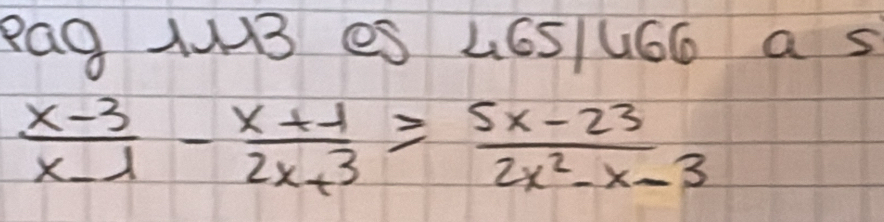 Pag 1113 es 465/466 a s
x-3/x-1 - x+1/2x+3 ≥ 5x-23/2x²-x-3